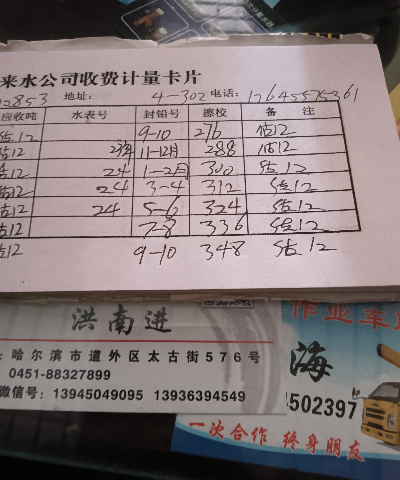 来水公司收费计量卡片
12853 地址： 4-302 电话： 17645575361
应收吨 水表号 封铅号 擦校 备 注
估12 9-10 276 估12
估12 23年 11-12月 288 估12
估12 24 1-2月 300 估12
估12 24 3-4 312 估12
估12 24 5-6 324 估12
估12 7-8 336 估12
估12 9-10 348 估12
洪南进
：哈尔滨市道外区太古街576号
0451-88327899
微信号：13945049095 13936394549
作业车
海
502397
一次合作 终身朋友